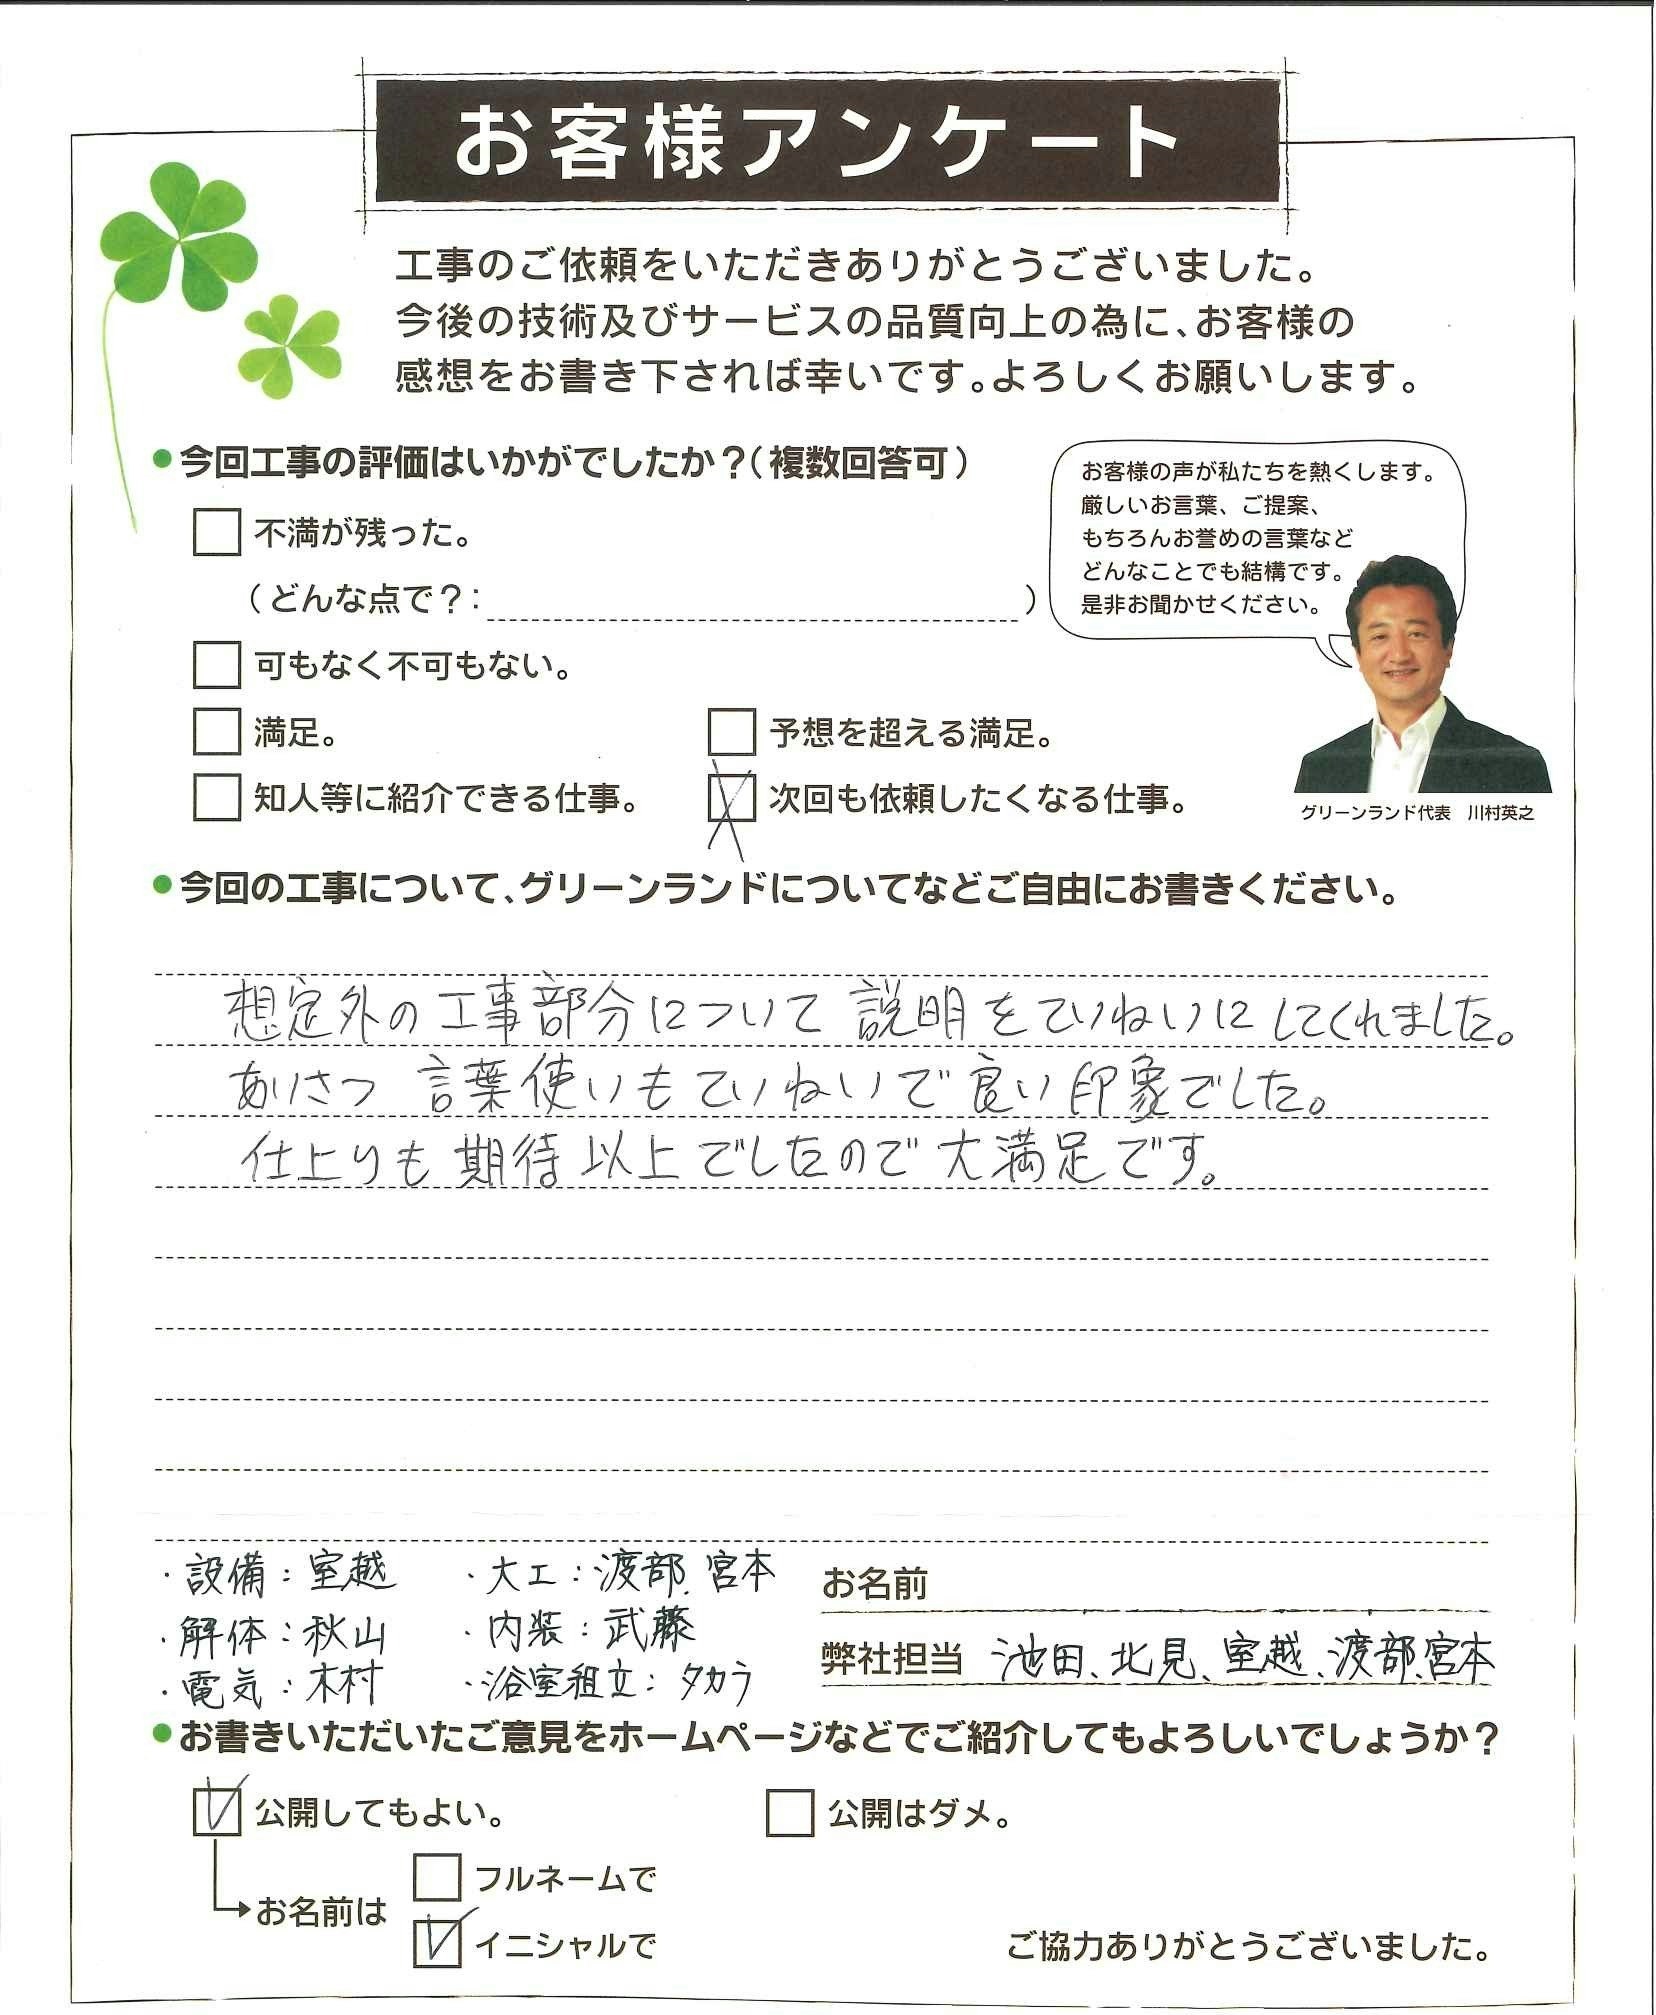 お客様アンケート
工事のご依頼をいただきありがとうございました。
今後の技術及びサービスの品質向上の為に、お客様の
感想をお書き下されば幸いです。よろしくお願いします。
●今回工事の評価はいかがでしたか？（複数回答可）
不満が残った。
（どんな点で？：　）
可もなく不可もない。
満足。
予想を超える満足。
知人等に紹介できる仕事。
次回も依頼したくなる仕事。
お客様の声が私たちを熱くします。
厳しいお言葉、ご提案、
もちろんお誉めの言葉など
どんなことでも結構です。
是非お聞かせください。
グリーンランド代表　川村英之
●今回の工事について、グリーンランドについてなどご自由にお書きください。
想定外の工事部分について説明をていねいにしてくれました。
あいさつ 言葉使いもていねいで良い印象でした。
仕上りも期待以上でしたので大満足です。
・設備：室越
・大工：渡部、宮本
・解体：秋山
・内装：武藤
・電気：木村
・浴室組立：タカラ
お名前
弊社担当 池田、北見、室越、渡部、宮本
●お書きいただいたご意見をホームページなどでご紹介してもよろしいでしょうか？
公開してもよい。
公開はダメ。
お名前は
フルネームで
イニシャルで
ご協力ありがとうございました。